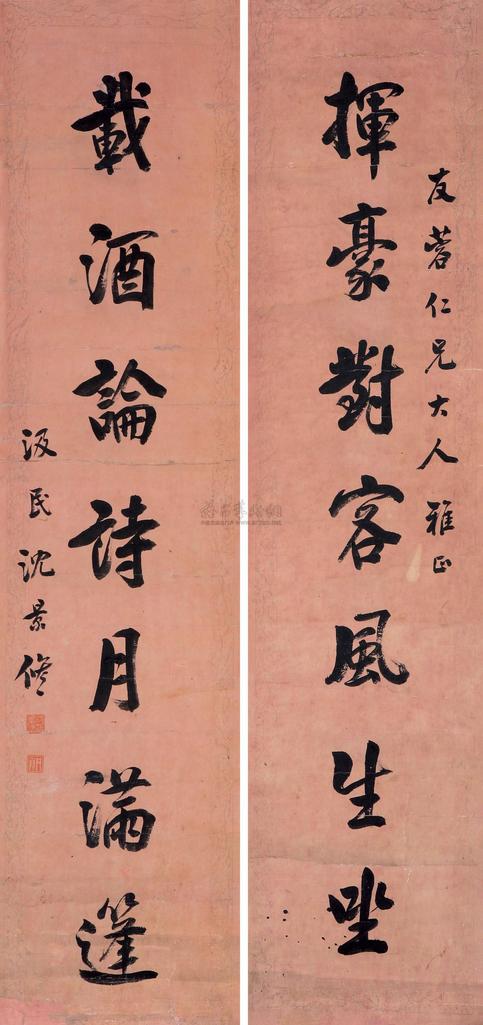 友蓉仁兄大人雅正
揮豪對客風生坐
載酒論詩月滿篷
汲民沈景修